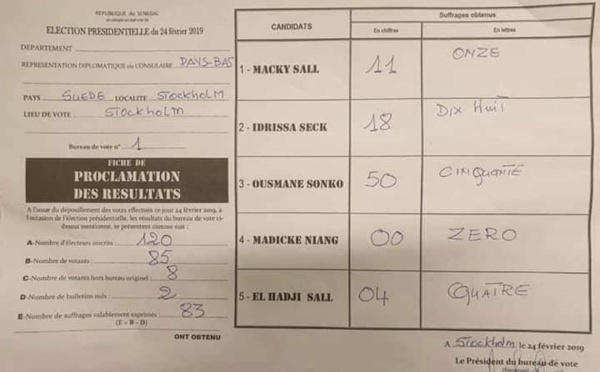 REPUBLIQUE DU SENEGAL
ELECTION PRESIDENTIELLE DU 24 février 2019
DEPARTEMENT
REPRESENTATION DIPLOMATIQUE OU CONSULAIRE PAYS-BAS
PAYS SUEDE LOCALITE STOCKHOLM
LIEU DE VOTE STOCKHOLM
Bureau de vote n° 1
FICHE DE
PROCLAMATION
DES RESULTATS
A l'issue du dépouillement des votes effectués ce jour 24 février 2019, à
l'occasion de l'élection présidentielle, les résultats du bureau de vote ci-
dessus mentionné, se présentent comme suit :
A-Nombre d'électeurs inscrits : 120
B-Nombre de votants : 85
C-Nombre de votants hors bureau originel : 8
D-Nombre de bulletins nuls : 2
E-Nombre de suffrages valablement exprimés : 83
(E = B - D)
ONT OBTENU
CANDIDATS
Suffrages obtenus
En chiffres
En lettres
1 - MACKY SALL 11 ONZE
2 - IDRISSA SECK 18 DIX HUIT
3 - OUSMANE SONKO 50 CINQUANTE
4 - MADICKE NIANG 00 ZERO
5 - EL HADJI SALL 04 QUATRE
A Stockholm le 24 février 2019
Le Président du bureau de vote